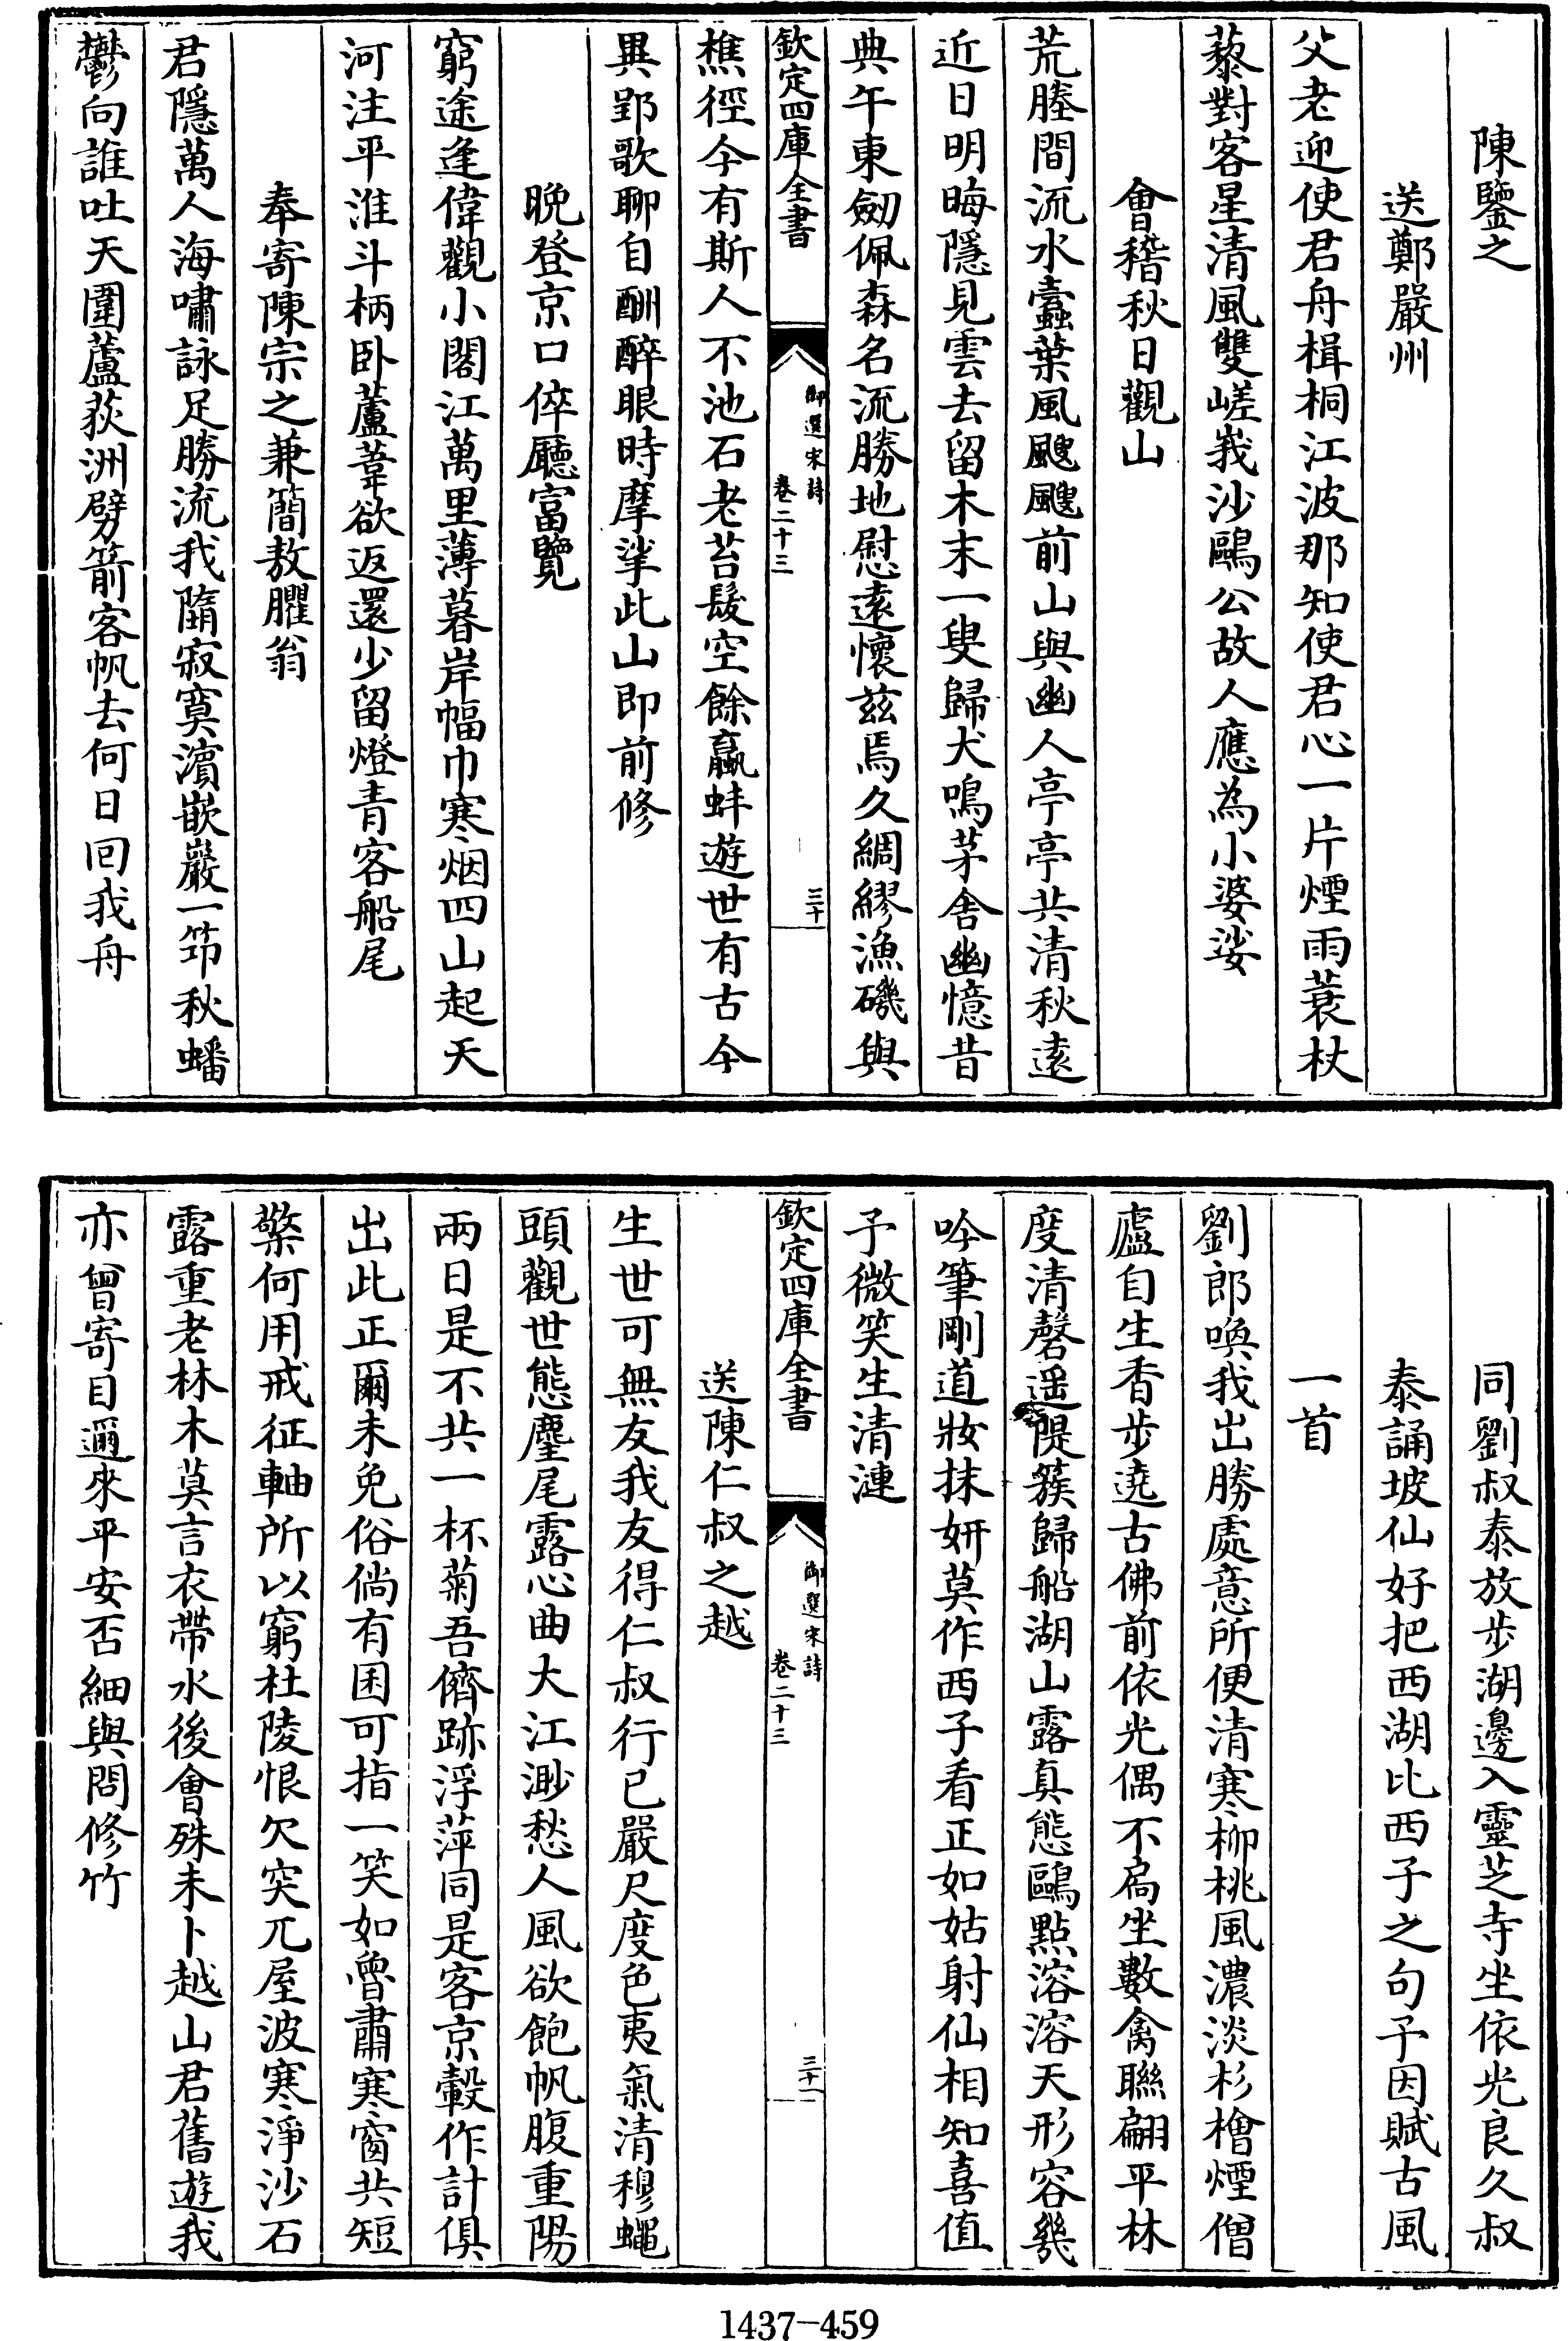 陳鑒之
送鄭嚴州
父老迎使君舟楫桐江波那知使君心一片煙雨蓑杖
藜對客星清風雙嵯峩沙鷗公故人應為小婆娑
會稽秋日觀山
荒塍間流水蠹葉風颼颼前山與幽人亭亭共清秋遠
近日明晦隱見雲去留木末一叟歸犬鳴茅舎幽憶昔
典午東劒佩森名流勝地慰遠懷茲焉久綢繆漁磯與
欽定四庫全書
御選宋詩
卷二十三
三十
樵徑今有斯人不池石老苔髮空餘蠃蚌遊世有古今
異郢歌聊自酬醉眼時摩挲此山即前修
晚登京口倅廳富覽
窮途逢偉觀小閣江萬里薄暮岸幅巾寒烟四山起天
河注平淮斗柄卧蘆葦欲返還少留燈青客船尾
奉寄陳宗之兼簡敖臞翁
君隱萬人海嘯詠足勝流我隋寂寞濵嵌巖一笻秋蟠
鬱向誰吐天圍蘆荻洲劈箭客帆去何日回我舟
同劉叔泰放步湖邊入靈芝寺坐依光良久叔
泰誦坡仙好把西湖比西子之句予因賦古風
一首
劉郎喚我出勝處意所便清寒柳桃風濃淡杉檜煙僧
廬自生香步遶古佛前依光偶不扃坐數禽聯翩平林
度清磬遥隄簇歸船湖山露真態鷗點溶溶天形容幾
吟筆剛道妝抹妍莫作西子看正如姑射仙相知喜值
予微笑生清漣
欽定四庫全書
御選宋詩
卷二十三
三十一
送陳仁叔之越
生世可無友我友得仁叔行已嚴尺度色夷氣清穆蠅
頭觀世態麈尾露心曲大江渺愁人風欲飽帆腹重陽
兩日是不共一杯菊吾儕跡浮萍同是客京轂作計俱
出此正爾未免俗倘有囷可指一笑如魯肅寒窗共短
檠何用戒征軸所以窮杜陵恨欠突兀屋波寒淨沙石
露重老林木莫言衣帶水後會殊未卜越山君舊遊我
亦曾寄目邇來平安否細與問修竹
1437-459